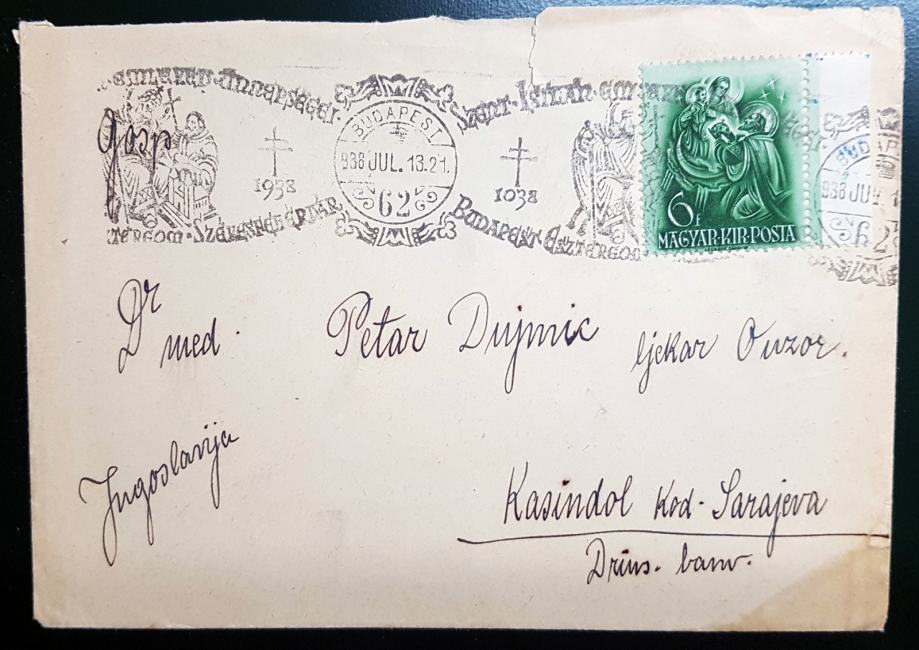 Szent István emlék
1938
1038
BUDAPEST
938 JUL. 13. 21
62
BUDAPEST ESZTERGOM
SZÉKESFEHÉRVÁR
6f
MAGYAR·KIR·POSTA
BUDAP
938 JU
62
Gosp
Dr med. Petar Dujmic ljekar Ouzor.
Jugoslavija
Kasindol kod - Sarajeva
Drins. banv.